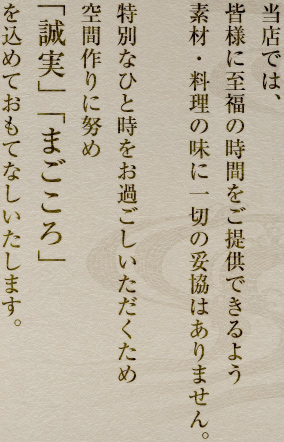 当店では、
皆様に至福の時間をご提供できるよう
素材・料理の味に一切の妥協はありません。
特別なひと時をお過ごしいただくため
空間作りに努め
「誠実」「まごころ」
を込めておもてなしいたします。